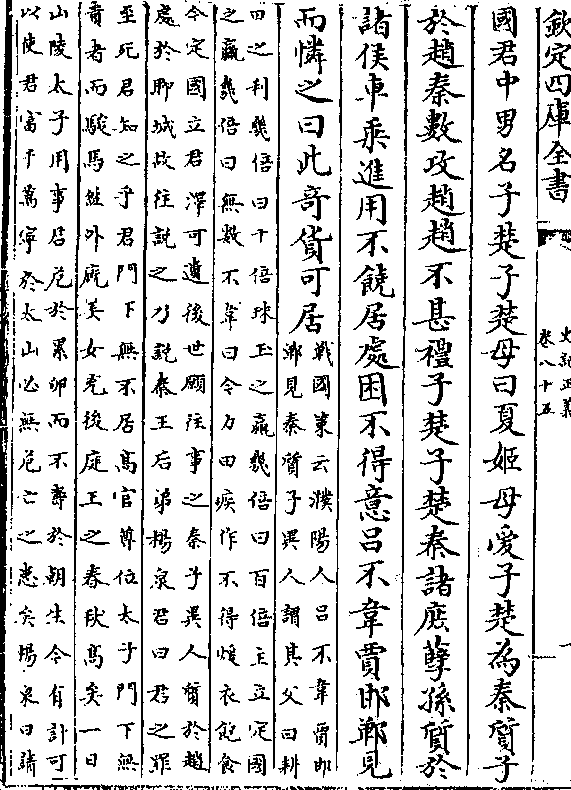 欽定四庫全書
史記正義
卷八十五
一
國君中男名子楚子楚母曰夏姬母愛子楚為秦質子
於趙秦數攻趙趙不甚禮子楚子楚秦諸庶孽孫質於
諸侯車乘進用不饒居處困不得意吕不韋賈邯鄲見
而憐之曰此竒貨可居
戰國策云濮陽人吕不韋賈邯
鄲見秦質子異人謂其父曰耕
田之利幾倍曰十倍珠玉之贏幾倍曰百倍主立定國
之贏幾倍曰無數不韋曰今力田疾作不得煖衣飽食
今定國立君澤可遺後世願往事之秦子異人質於趙
處於聊城故往說之乃說秦王后弟楊泉君曰君之罪
至死君知之乎君門下無不居高官尊位太子門下無
貴者而駿馬盈外廐美女充後庭王之春秋高矣一日
山陵太子用事君危於累卵而不壽於朝生今有計可
以使君富千萬寧於太山必無危亡之患矣楊泉曰請